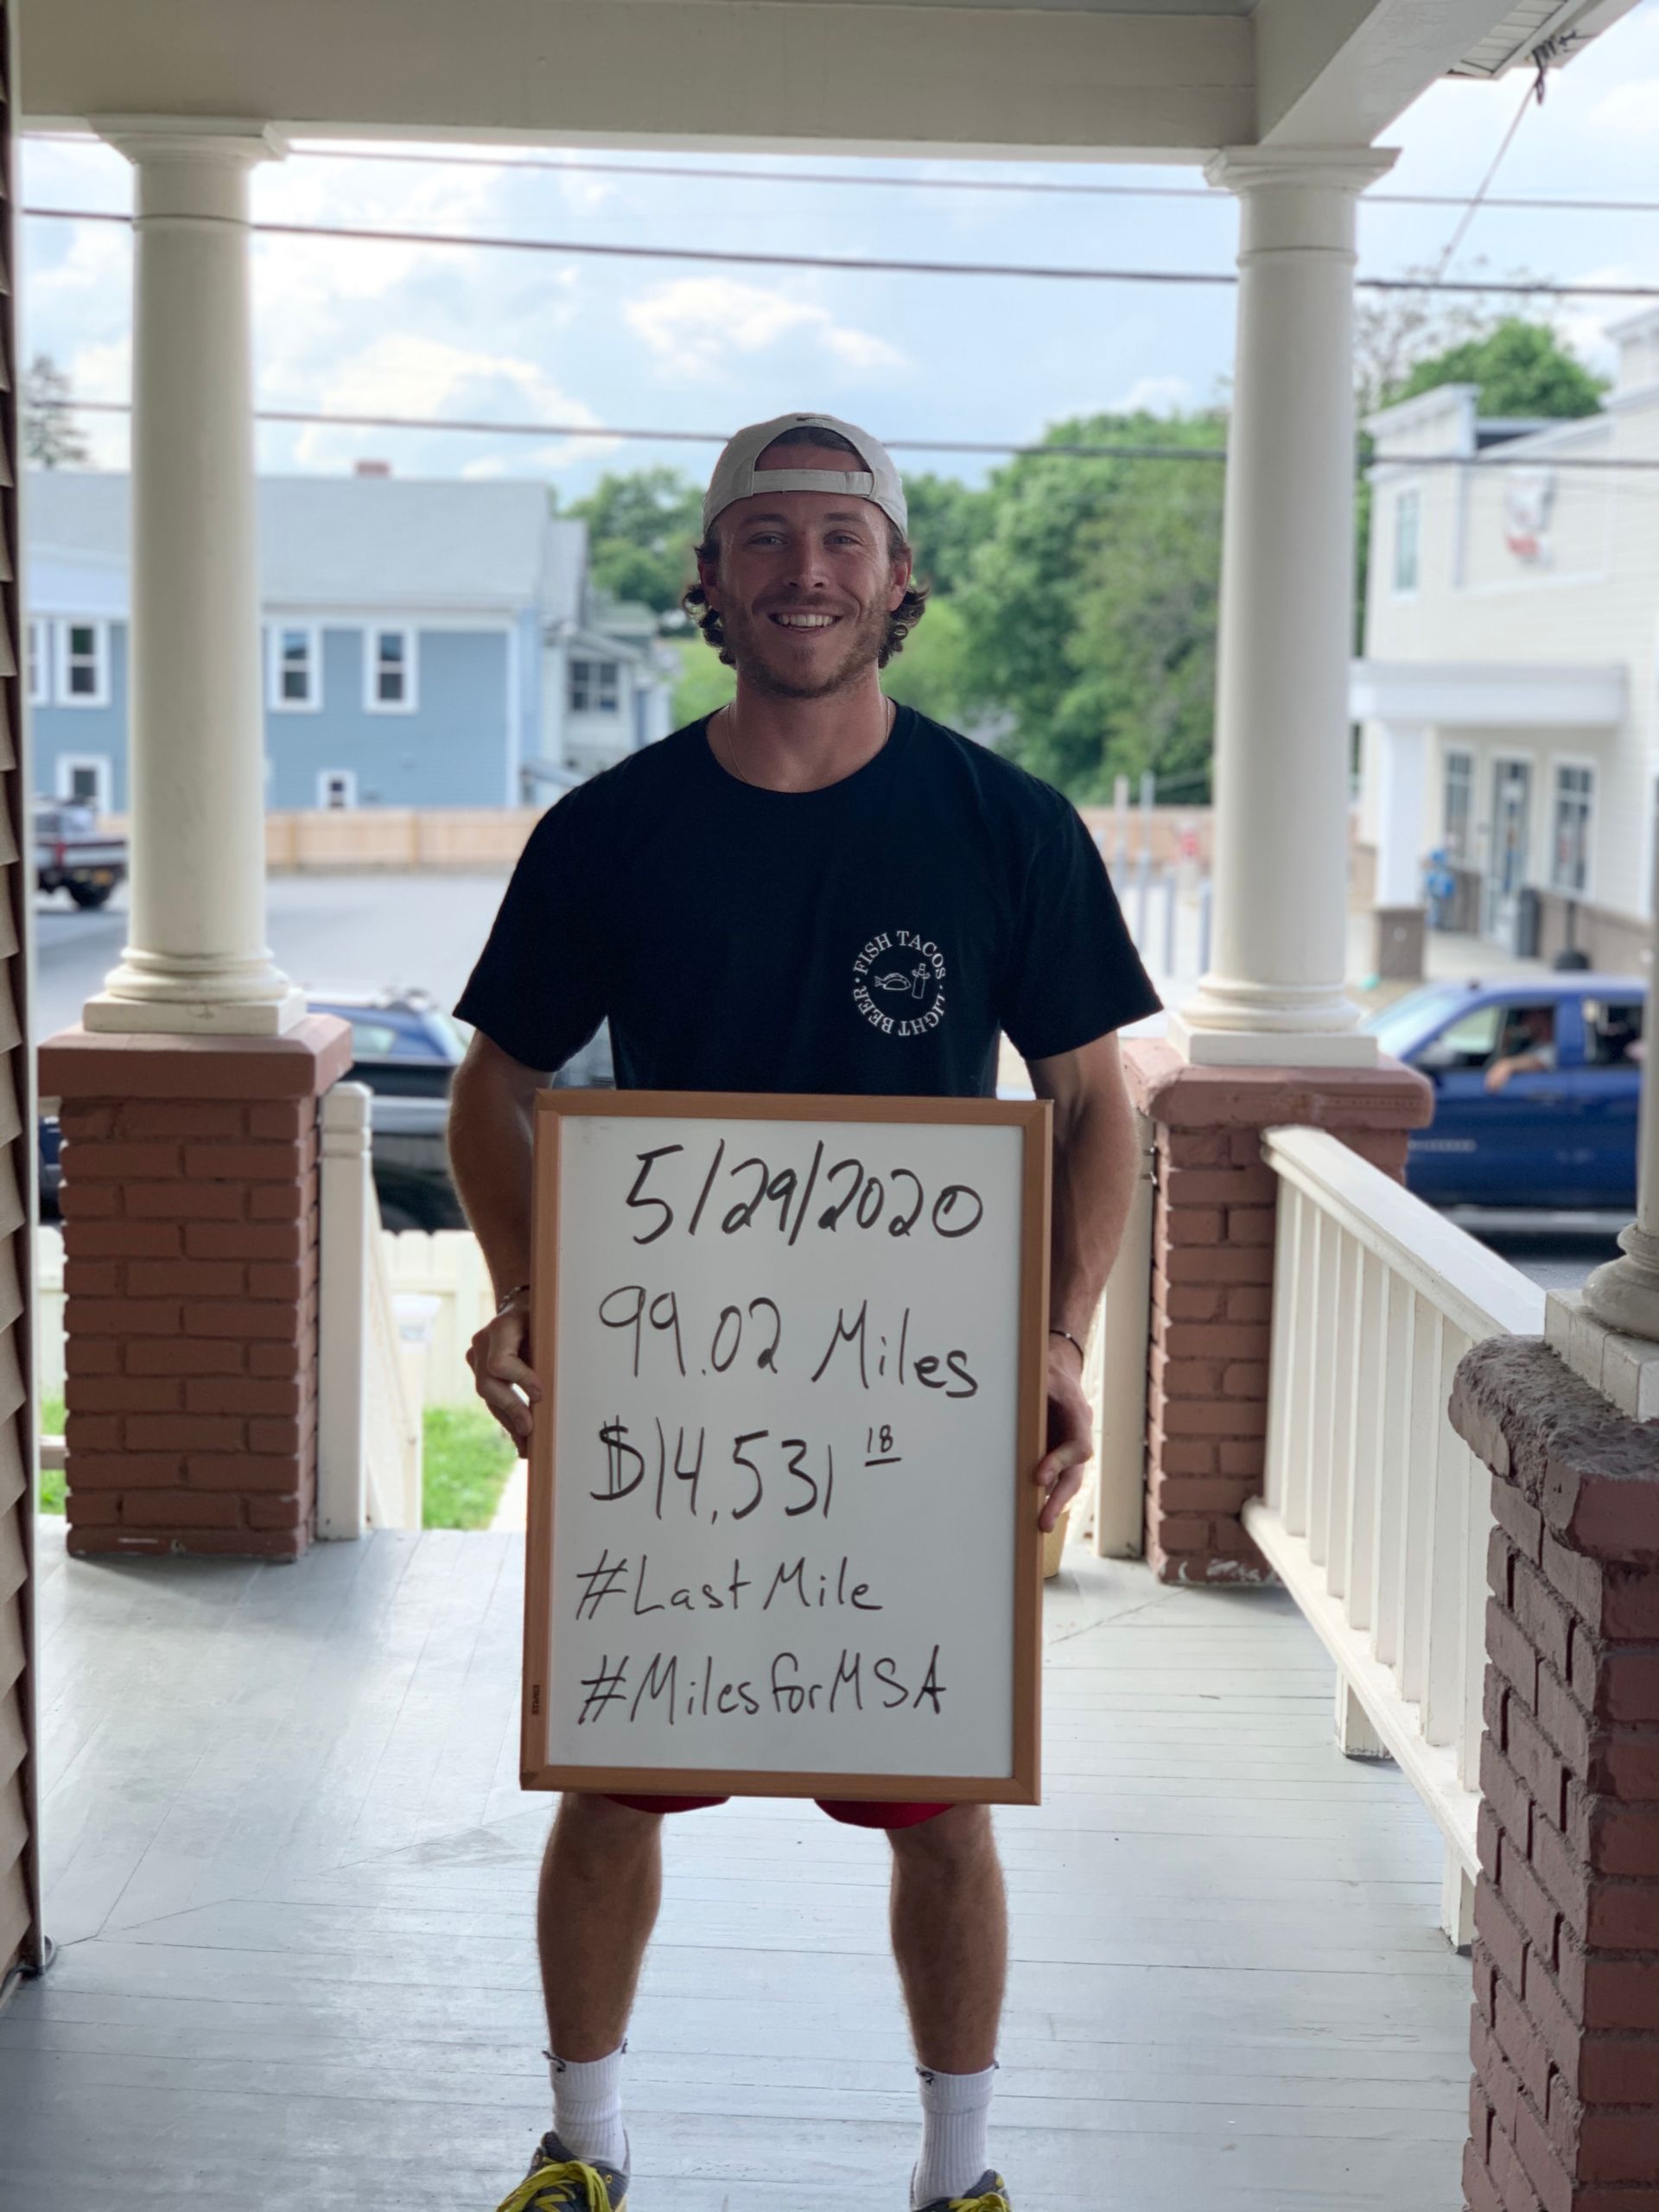 FISH TACOS · LIGHT BEER ·
5/29/2020
99.02 Miles
$14,531 18
#LastMile
#MilesforMSA